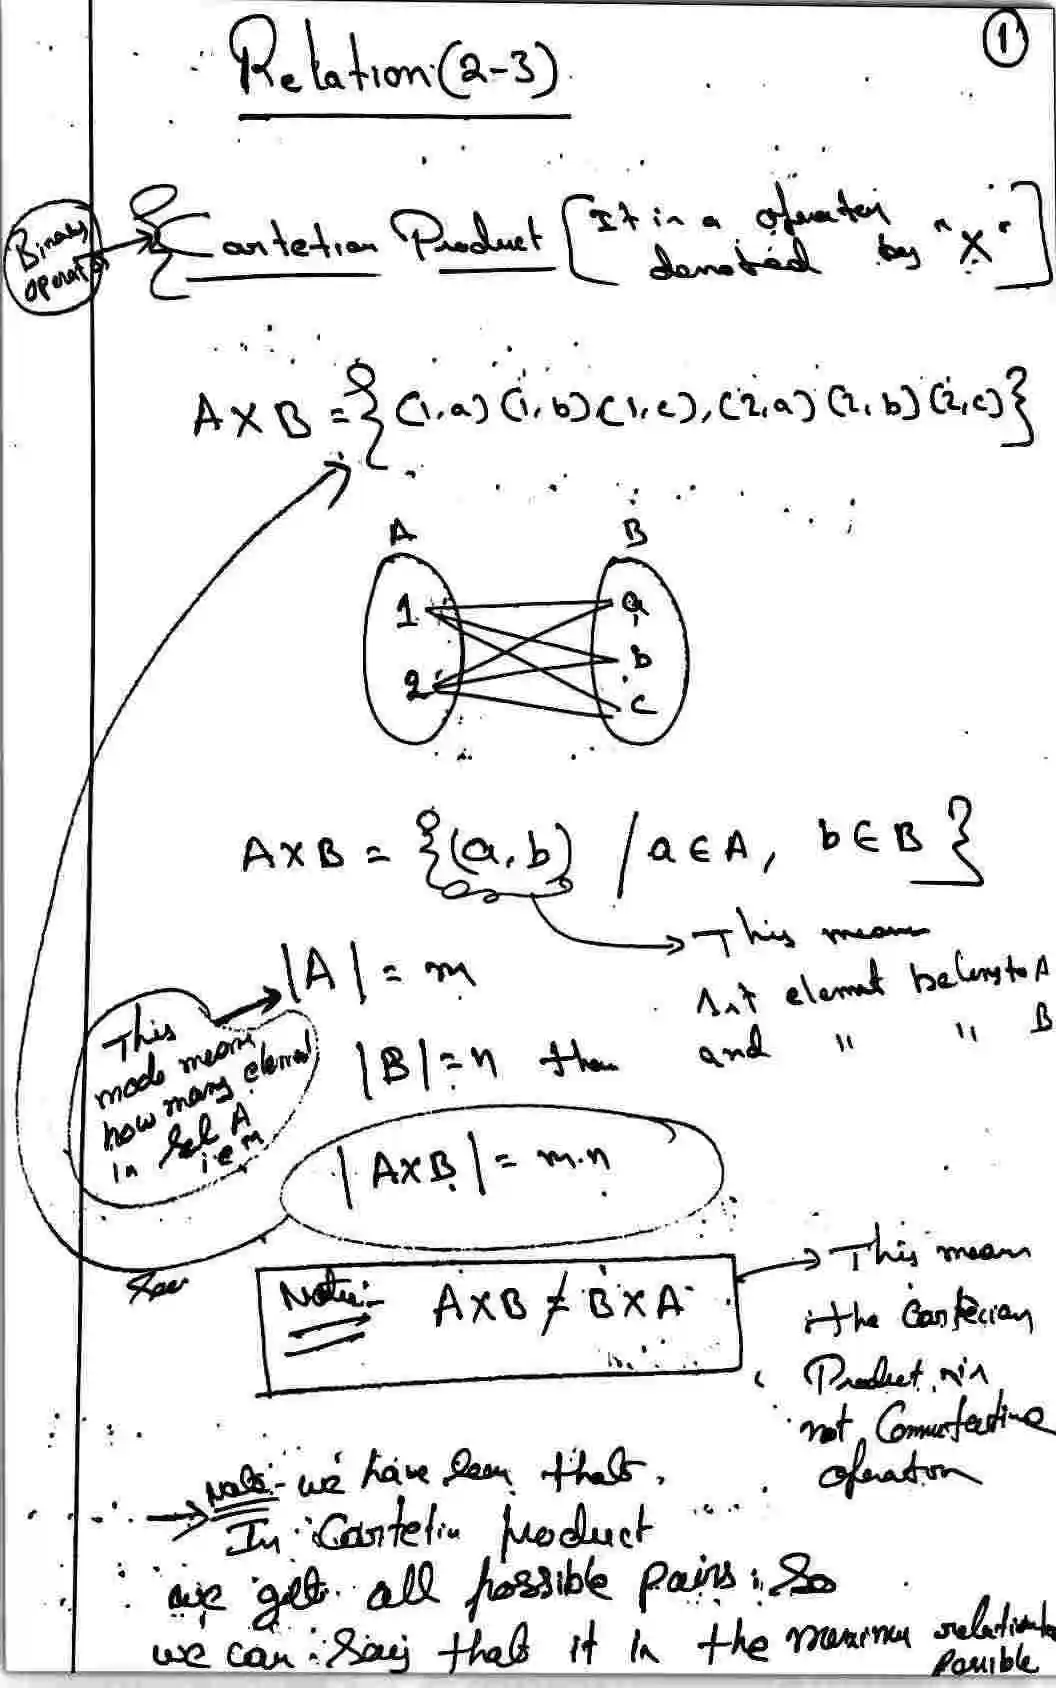 1
Relation (2-3)
Binary
operator
Cartetian Product [It is a operator
denoted by "X"]
A X B = {(1,a) (1,b) (1,c), (2,a) (2,b) (2,c)}
A B
1 a
2 b
c
A X B = {(a,b) / a ∈ A, b ∈ B}
This means
1st element belongs to A
and " " B
|A| = m
|B| = n then
This
mode means
how many element
in Set A
i.e m
|AXB| = m.n
Note:- AXB ≠ BXA
This means
the Cartecian
Product is
not Commutative
operation
Note:- we have seen that,
In Cartetin product
we get all possible pairs. So
we can say that it is the maximum relation
possible